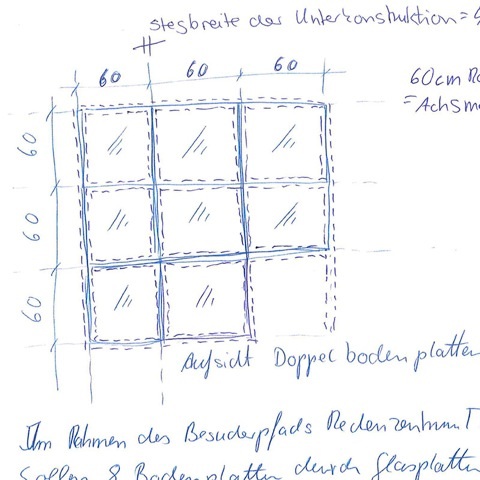 stegbreite der Unterkonstruktion =
60 60 60
60cm
= Achsm
60
60
60
Aufsicht Doppelbodenplatten
Im Rahmen des Besucherpfads Medenzentrum
Sollen 8 Bodenplatten durch Glasplatten